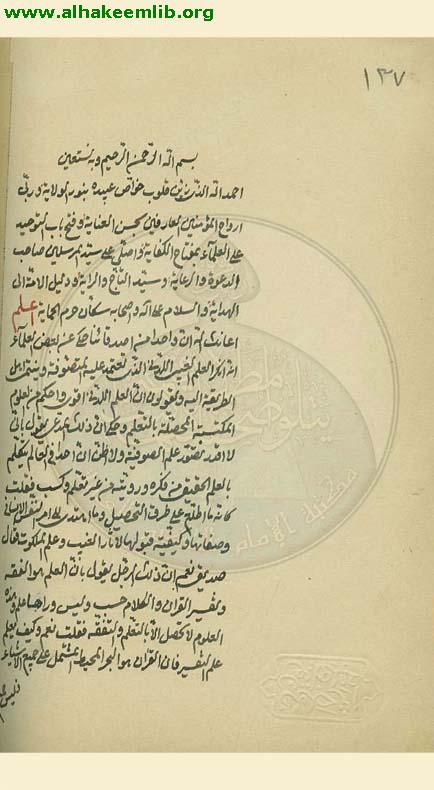 www.alhakeemlib.org
١٣٧
بسم الله الرحمن الرحيم وبه نستعين
احمد الله الذي زين قلوب خواص عبيده بنور الولاية وربى
ارواح المؤمنين العارفين بحسن العناية وفتح باب التوحيد
على العلماء بمفتاح الكفاية واصلي على سيد المرسلين صاحب
الدعوة والرعاية وسيد التاج والراية ودليل الامة الى
الهداية والسلام على اله واصحابه سكان حرم الحماية اعلم
ان واحدا من اصدقائنا حكى عن بعض العلماء
انه انكر العلم الغيب اللدني الذي تعتمد عليه المتصوفة وينتمي اهل
الطريقة اليه ويقولون ان العلم اللدني اقوى واحكم من العلوم
المكتسبة المحصلة بالتعلم وحكى ان ذلك يقول باني
لا اقدر تصور علم الصوفية ولا اظن ان احدا في العالم يتكلم
بالعلم الحقيقي من فكره وروية من غير تعلم وكسب فقلت
كانه ما اطلع على طرق التحصيل وما امر النفس الانسانية
وصفاتها وكيفية قبولها لاثار الغيب وعلم الملكوت فقال
صديقي نعم ان ذلك الرجل يقول بان العلم هو الفقه
وتفسير القران والكلام حسب وليس وراءها علم وهذه
العلوم لا تحصل الا بالتعلم والتفقه فقلت نعم وكيف يعلم
علم التفسير فان القران هو البحر المحيط المشتمل على جميع الاشياء